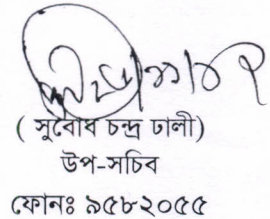 ( সুবোধ চন্দ্র ঢালী)
উপ-সচিব
ফোনঃ ৯৫৮২০৫৫